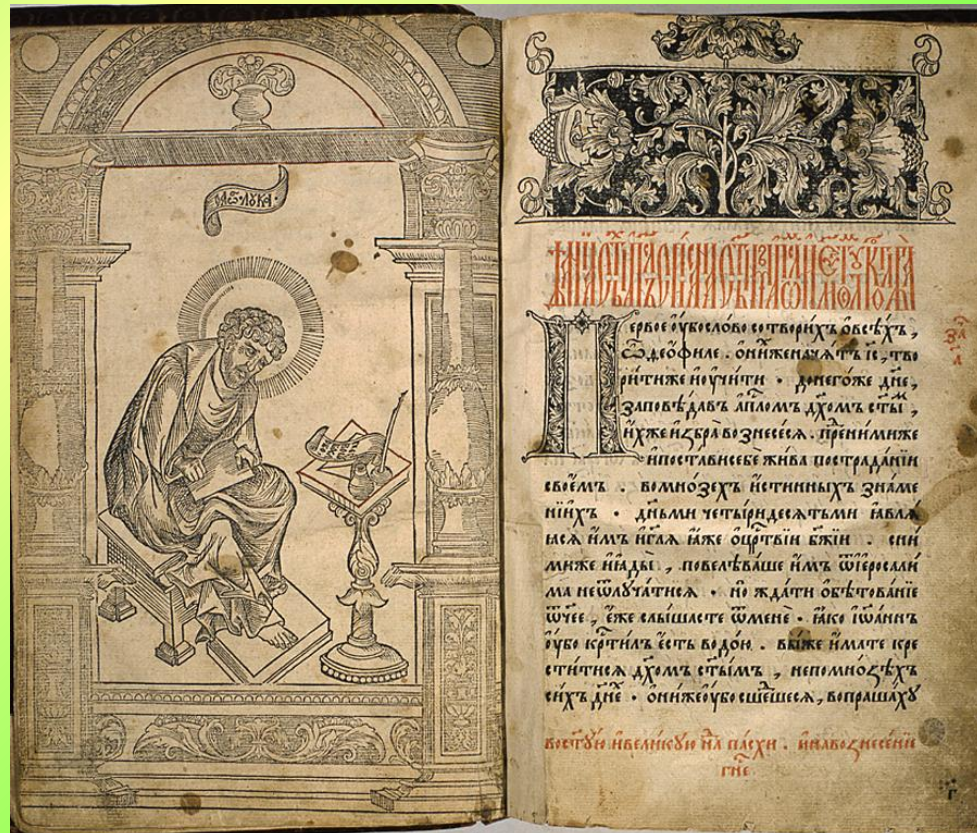 ст҃ы лꙋка
Первое ᲂу҆бо слово сотвори́хъ ѻ҆ все́хъ,
ѽ деѻ҆́филе. ѻ҆ни́хже нача́тъ і҆с҃, тво
ри́ти же и҆ ᲂу҆чи́ти. до него́же дн҃е,
запове́давъ а҆пⷭ҇ломъ дх҃омъ ст҃ы́мъ,
и҆́хже и҆збра̀ вознесе́сѧ. пре́ ни́миже
и҆ поста́ви себѐ жи́ва по страда́нїи
свое́мъ. во мно́зехъ и҆́стинныхъ зна́ме
нїихъ. дн҃ьми четы́ридесѧтьми ꙗ҆влѧ́
ꙗсѧ и҆̀мъ и҆ гл҃ѧ ꙗ҆̀же ѻ҆ црⷭ҇твїи бж҃їи. сни́
миже и҆ ꙗ҆ды̀, повелѣва́ше и҆̀мъ ѿ і҆еросали́
ма не ѿлꙋча́тисѧ. но жда́ти ѻ҆бѣтова́нїе
ѻ҆́ч҃ее, є҆́же слы́шасте ѿ менѐ. ꙗ҆́ко і҆ѡа́ннъ
ᲂу҆́бо крⷭ҇ти́лъ є҆́сть водо́ю. вы́же и҆́мате кре
сти́тисѧ дх҃омъ ст҃ы́мъ, не по мно́зѣхъ
си́хъ дн҃е. ѻ҆ни́же ᲂу҆́бо сше́дшесѧ, вопраша́хꙋ
во ст҃ꙋ́ю и҆ вели́кꙋю нⷣлѧ па́схи. и҆ на вознесе́нїе
гн҃е.